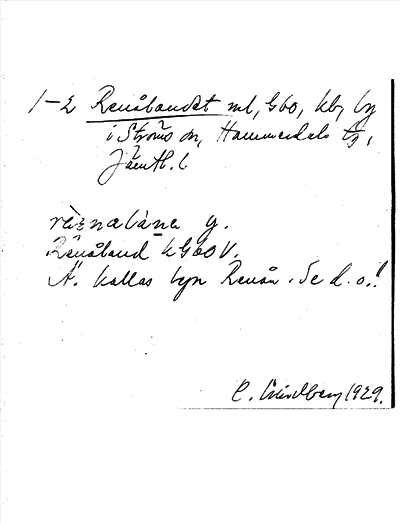 1-2 Renålandet ml, Gbo, kb, by
i Ströms sn, Hammerdals tg,
Jämtl. l
rè̱ᵻnalána g.
Renåland kG60V.
Ä. kallas byn Renån. Se d.o.!
C. Lindberg 1929.